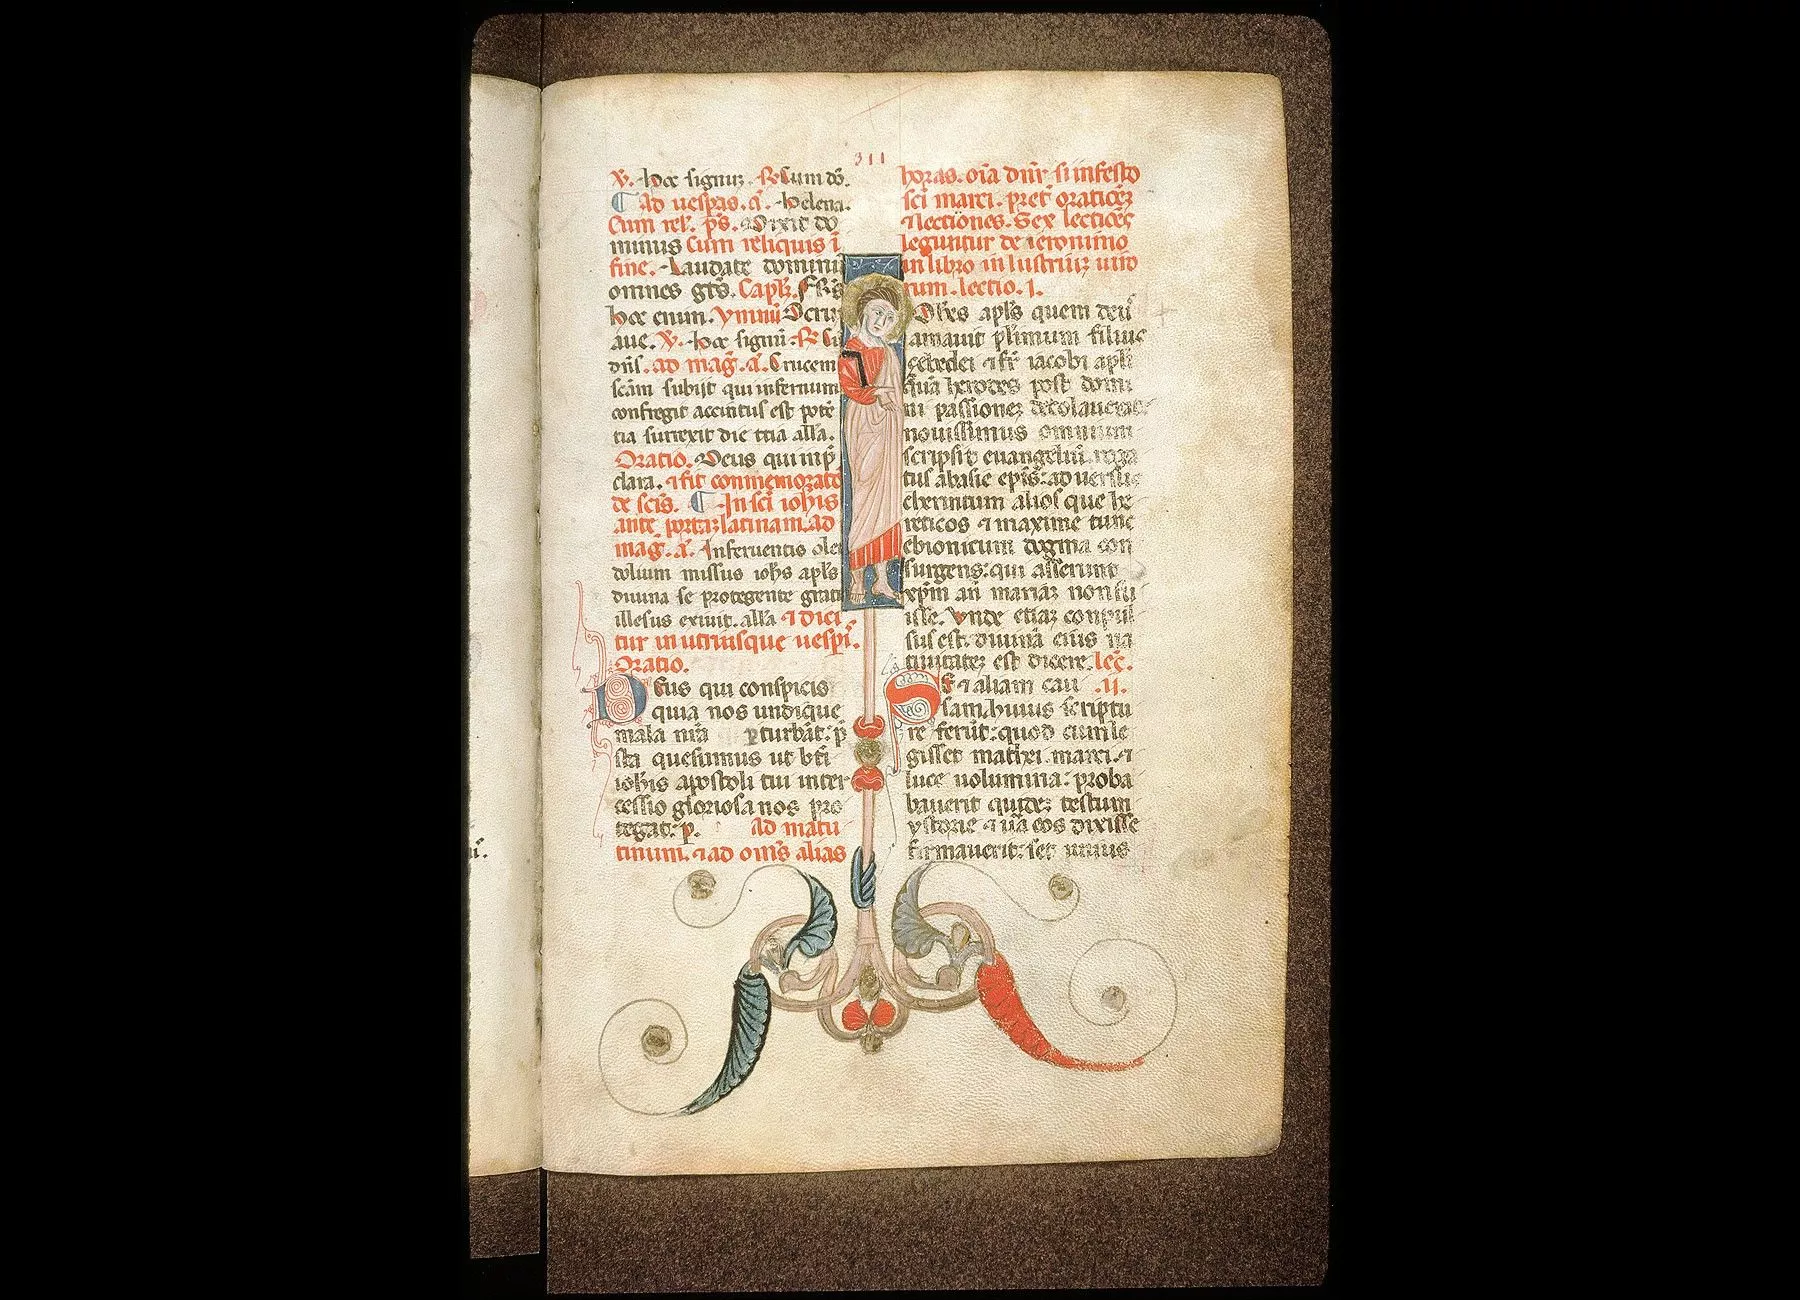 311
V. hoc signuz. R. Cum dn̄s.
Ad uesp̄as. a. helena.
Cum rel. p̄s. Dixit do
minus Cum reliquis i
fine. Laudate dominū
omnes gēs. Capl. Frs
hoc enim. Ymnū
aue. V. hoc signū. R. Cū
dn̄s. ad mag. a. Crucem
scām subijt qui infernum
confregit accintus est potē
tia surrexit die t̄cia all̄a.
Oratio. Deus qui in p̄
clara. ⁊ fit commemoratō
de scīs. In sc̄i ioh̄is
ante portaz latinam. ad
mag. a. Inferuentis olei
dolium missus ioh̄s apl̄s
diuina se protegente gratia
illesus exiuit. all̄a ⁊ dici
tur in utriusque uesp̄i.
Oratio.
Deus qui conspicis
quia nos undique
mala n̄ra perturbāt: p̄
sta quesumus ut bt̄i
ioh̄is apostoli tui inter
cessio gloriosa nos pro
tegat: p. ad matu
tinum. ⁊ ad om̄s alias
horas. oīa dn̄r si in festo
sc̄i marci. pret̄ orationez
⁊ lectiones. Sex lectiões
leguntur de ieronimo
in libro inlustriuz uiro
rum. lectio. I.
Ioh̄es apl̄s quem deus
amauit pl̄imum filius
çebedei ⁊ fr̄ iacobi apl̄i
quē herodes post domi
ni passionez decolauerat
nouissimus omnium
scripsit euangeliū roga
tus ab asie ep̄is: aduersus
cherintum alios que he
reticos ⁊ maxime tunc
ebionicum dogma con
surgens: qui asserunt
xp̄m an̄ mariaz non fu
isse. Vnde etiaz conpul
sus est. diuinā eius na
tiuitatez est dicere. lec̄.
Sȝ ⁊ aliam cau .II.
sam huius scriptu
re ferūt: quod cum le
gisset mathei. marci. ⁊
luce uolumina: proba
bauerit quidez testum
ystorie ⁊ uā eos dixisse
firmauerit: set unius